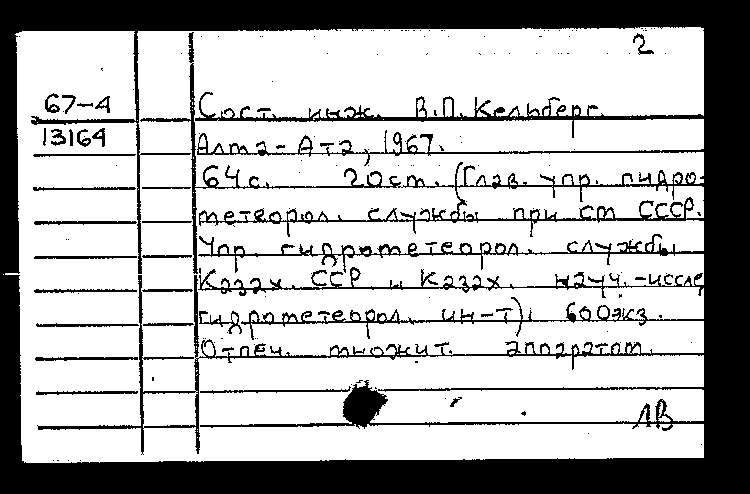 2
67-4
13164
Сост. инж. В.П. Кельберг.
Алма-Ата, 1967.
64 с. 20 см. (Глав. упр. гидро-
метеорол. службы при СМ СССР.
Упр. гидрометеорол. службы
Казах. ССР и Казах. науч.-иссле
гидрометеорол. ин-т). 600 экз.
Отпеч. множит. аппаратом.
ЛВ